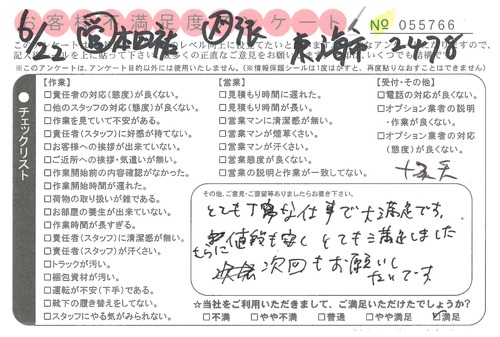 お客様不満足度アンケート
№ 055766
6/22
東海市 2478
※このアンケートは、アンケート目的以外には使用いたしません。(※情報保護シールは1度はがすと、再度貼りなおすことはできません)
チェックリスト
【作業】
□責任者の対応(態度)が良くない。
□他のスタッフの対応(態度)が良くない。
□作業を見ていて不安がある。
□責任者(スタッフ)に好感が持てない。
□お客様への挨拶が出来ていない。
□ご近所への挨拶・気遣いが無い。
□作業開始前の内容確認がなかった。
□作業開始時間が遅れた。
□荷物の取り扱いが雑である。
□お部屋の養生が出来ていない。
□作業時間が長すぎる。
□責任者(スタッフ)に清潔感が無い。
□責任者(スタッフ)が汗くさい。
□トラックが汚い。
□梱包資材が汚い。
□運転が不安(下手)である。
□靴下の履き替えをしてない。
□スタッフにやる気がみられない。
【営業】
□見積もり時間に遅れた。
□見積もり時間が長い。
□営業マンに清潔感が無い。
□営業マンが煙草くさい。
□営業マンが汗くさい。
□営業態度が良くない。
□営業の説明と作業が一致してない。
【受付・その他】
□電話の対応が良くない。
□オプション業者の説明・作業が良くない。
□オプション業者の対応(態度)が良くない。
その他、ご意見・ご要望等ありましたらお書き下さい。
とても丁寧な仕事で大満足です。
さらに値段も安くとても満足しました
次回もお願いし
たいです
☆当社をご利用いただきまして、ご満足いただけたでしょうか?
□不満 □やや不満 □普通 □やや満足 ☑満足